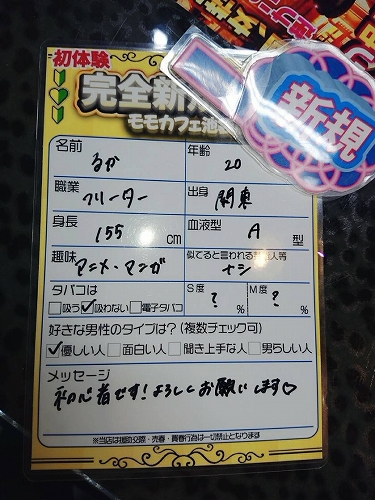 初体験
完全新
モモカフェ池
新規
名前 るか 年齢 20
職業 フリーター 出身 関東
身長 155 cm 血液型 A 型
趣味 アニメ・マンガ 似てると言われる 人等 ナシ
タバコは S度 ? % M度 ? %
吸う 吸わない 電子タバコ
好きな男性のタイプは?(複数チェック可)
優しい人 面白い人 聞き上手な人 男らしい人
メッセージ
初心者です!よろしくお願いします♡
※当店は援助交際・売春・買春行為は一切禁止となります